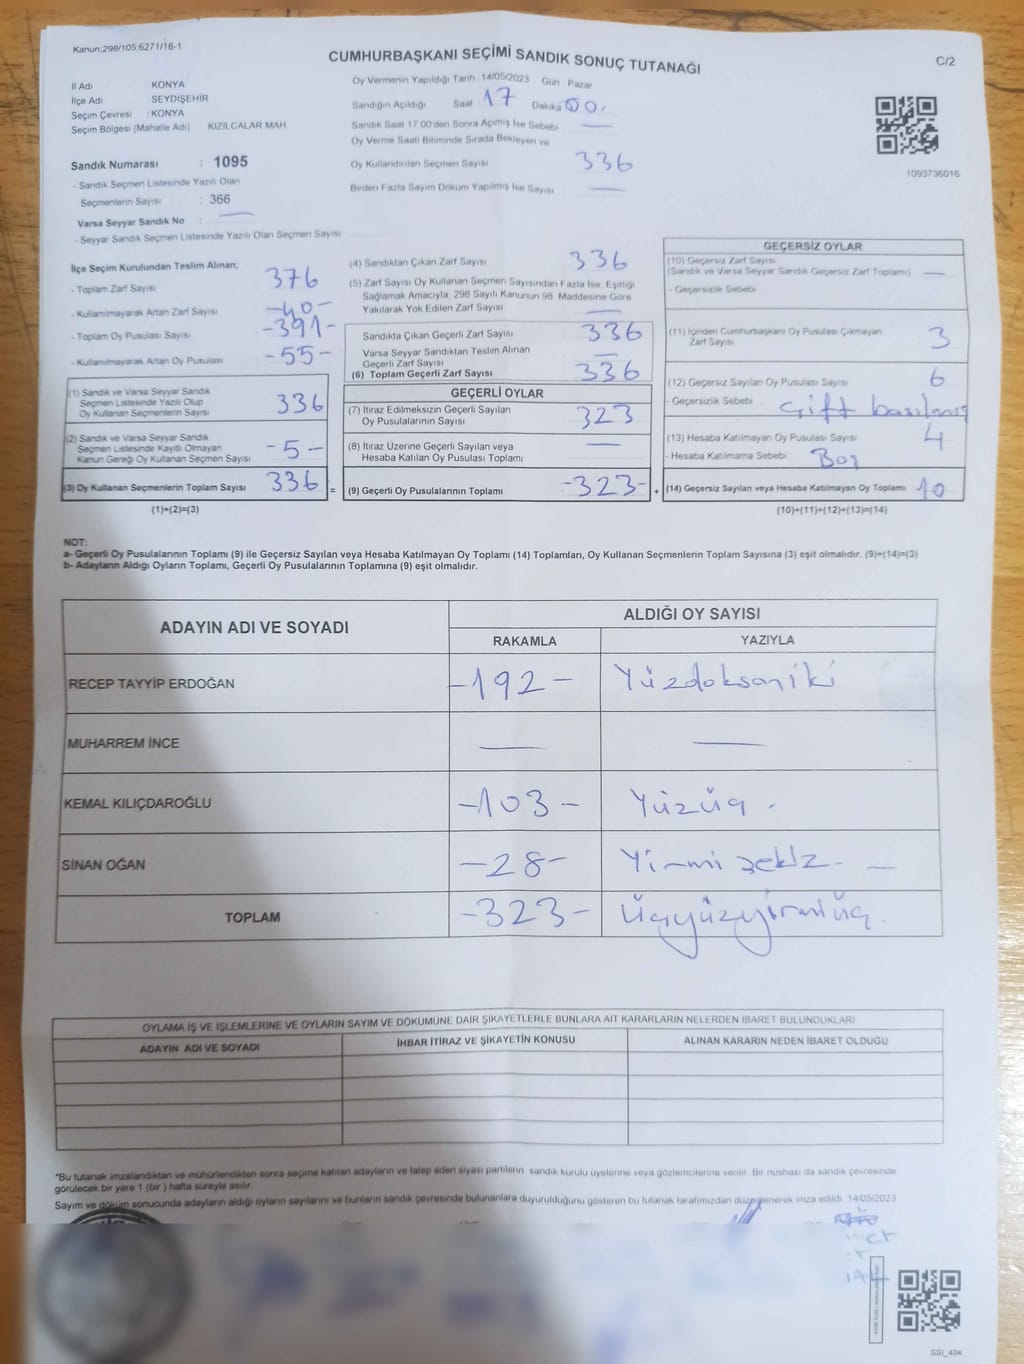 Kanun:298/105,6271/18-1
CUMHURBAŞKANI SEÇİMİ SANDIK SONUÇ TUTANAĞI
C/2
İl Adı KONYA
İlçe Adı SEYDİŞEHİR
Seçim Çevresi : KONYA
Seçim Bölgesi (Mahalle Adı) KIZILCALAR MAH
Oy Vermenin Yapıldığı Tarih 14/05/2023 Gün Pazar
Sandığın Açıldığı Saat 17 Dakika 00
Sandık Saat 17:00'den Sonra Açımış İse Sebebi
Oy Verme Saati Bitiminde Sırada Bekleyen ve
Oy Kullandırılan Seçmen Sayısı 336
Birden Fazla Sayım Döküm Yapılmış İse Sayısı
1093736016
Sandık Numarası : 1095
- Sandık Seçmen Listesinde Yazılı Olan
Seçmenlerin Sayısı : 366
Varsa Seyyar Sandık No :
- Seyyar Sandık Seçmen Listesinde Yazılı Olan Seçmen Sayısı:
İlçe Seçim Kurulundan Teslim Alınan;
- Toplam Zarf Sayısı 376
- Kullanılmayarak Artan Zarf Sayısı -40-
- Toplam Oy Pusulası Sayısı -391-
- Kullanılmayarak Artan Oy Pusulası -55-
(1) Sandık ve Varsa Seyyar Sandık
Seçmen Listesinde Yazılı Olup
Oy Kullanan Seçmenlerin Sayısı 336
(2) Sandık ve Varsa Seyyar Sandık
Seçmen Listesinde Kayıtlı Olmayan
Kanun Gereği Oy Kullanan Seçmen Sayısı -5-
(3) Oy Kullanan Seçmenlerin Toplam Sayısı 336 =
(1)+(2)=(3)
(4) Sandıktan Çıkan Zarf Sayısı 336
(5) Zarf Sayısı Oy Kullanan Seçmen Sayısından Fazla İse, Eşitliği
Sağlamak Amacıyla, 298 Sayılı Kanunun 98. Maddesine Göre
Yakılarak Yok Edilen Zarf Sayısı
Sandıkta Çıkan Geçerli Zarf Sayısı 336
Varsa Seyyar Sandıktan Teslim Alınan
Geçerli Zarf Sayısı
(6) Toplam Geçerli Zarf Sayısı 336
GEÇERLİ OYLAR
(7) İtiraz Edilmeksizin Geçerli Sayılan
Oy Pusulalarının Sayısı 323
(8) İtiraz Üzerine Geçerli Sayılan veya
Hesaba Katılan Oy Pusulası Toplamı
(9) Geçerli Oy Pusulalarının Toplamı -323- +
GEÇERSİZ OYLAR
(10) Geçersiz Zarf Sayısı
(Sandık ve Varsa Seyyar Sandık Geçersiz Zarf Toplamı)
- Geçersizlik Sebebi
(11) İçinden Cumhurbaşkanı Oy Pusulası Çıkmayan
Zarf Sayısı 3
(12) Geçersiz Sayılan Oy Pusulası Sayısı 6
- Geçersizlik Sebebi Çift basılmış
(13) Hesaba Katılmayan Oy Pusulası Sayısı 4
- Hesaba Katılmama Sebebi Boş
(14) Geçersiz Sayılan veya Hesaba Katılmayan Oy Toplamı 10
(10)+(11)+(12)+(13)=(14)
NOT:
a- Geçerli Oy Pusulalarının Toplamı (9) ile Geçersiz Sayılan veya Hesaba Katılmayan Oy Toplamı (14) Toplamları, Oy Kullanan Seçmenlerin Toplam Sayısına (3) eşit olmalıdır. (9)+(14)=(3)
b- Adayların Aldığı Oyların Toplamı, Geçerli Oy Pusulalarının Toplamına (9) eşit olmalıdır.
ADAYIN ADI VE SOYADI
ALDIĞI OY SAYISI
RAKAMLA YAZIYLA
RECEP TAYYİP ERDOĞAN -192- Yüzdoksaniki
MUHARREM İNCE
KEMAL KILIÇDAROĞLU -103- Yüzüç
SİNAN OĞAN -28- Yirmi sekiz
TOPLAM -323- Üçyüzyirmiüç.
OYLAMA İŞ VE İŞLEMLERİNE VE OYLARIN SAYIM VE DÖKÜMÜNE DAİR ŞİKAYETLERLE BUNLARA AİT KARARLARIN NELERDEN İBARET BULUNDUKLARI
ADAYIN ADI VE SOYADI İHBAR İTİRAZ VE ŞİKAYETİN KONUSU ALINAN KARARIN NEDEN İBARET OLDUĞU
*Bu tutanak imzalandıktan ve mühürlendikten sonra seçime katılan adayların ve talep eden siyasi partilerin sandık kurulu üyelerine veya gözlemcilerine verilir. Bir nüshası da sandık çevresinde
görülecek bir yere 1 (bir) hafta süreyle asılır.
Sayım ve döküm sonucunda adayların aldığı oyların sayılarını ve bunların sandık çevresinde bulunanlara duyurulduğunu gösteren bu tutanak tarafımızdan düzenlenerek imza edildi. 14/05/2023
SSI_404